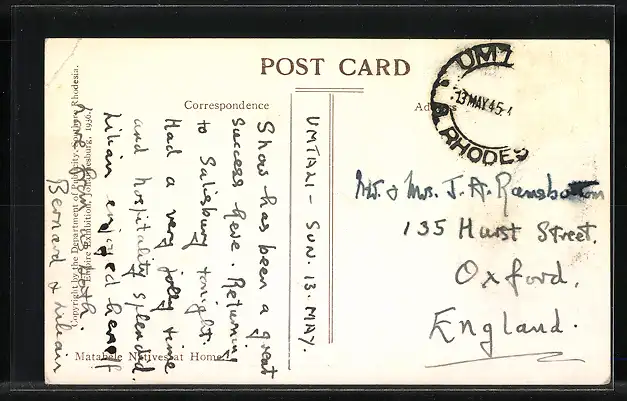 POST CARD
Correspondence
UMTALI - SUN. 13. MAY.
Show has been a great
success here. Returning
to Salisbury tonight.
Had a very jolly time
and hospitality splendid.
Lilian enjoyed herself
Love from us both.
Bernard & Lilian
Mr. & Mrs. J. A. Ramsbottom
135 Hurst Street.
Oxford.
England.
13 MAY 45
RHODES
Matabele Natives at Home
Copyright by the Department of Publicity, Southern Rhodesia.
Empire Exhibition, Johannesburg, 1936.